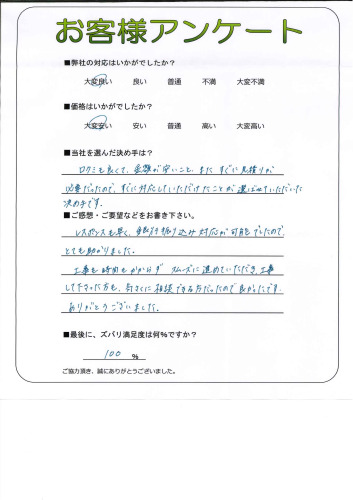 お客様アンケート
■弊社の対応はいかがでしたか?
大変良い 良い 普通 不満 大変不満
■価格はいかがでしたか?
大変安い 安い 普通 高い 大変高い
■当社を選んだ決め手は?
口コミも良くて、金額が安いこと、また すぐに見積りが
必要だったので、すぐに対応していただけたことが 選ばせていただいた
決め手です。
■ご感想・ご要望などをお書き下さい。
レスポンスも早く、銀行振り込み対応が可能でしたので、
とても助かりました。
工事も時間もかからず スムーズに進めていただき、工事
して下さった方も、気さくに相談できる方だったので良かったです。
ありがとうございました。
■最後に、ズバリ満足度は何%ですか?
100 %
ご協力頂き、誠にありがとうございました。